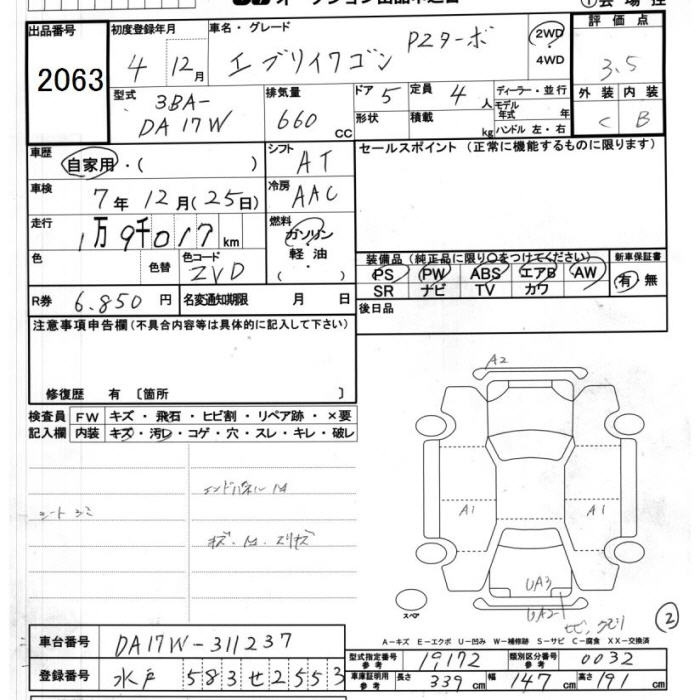 出品番号
2063
初度登録年月
4 12月
車名・グレード
エブリイワゴン PZターボ
2WD
4WD
評価点
3.5
外装 内装
C B
型式
3BA-
DA17W
排気量
660 cc
ドア 5
形状
定員 4 人
積載 kg
ディーラー・並行
モデル年式 年
ハンドル 左・右
車歴
自家用・( )
シフト
AT
車検
7年12月(25日)
冷房
AAC
走行
1万9千017km
燃料
ガソリン
軽油
( ・ )
色
色替
色コード
ZVD
R券 6.850円
名変通知期限 月 日
セールスポイント (正常に機能するものに限ります)
装備品(純正品に限り○をつけてください)
PS PW ABS エアB AW
SR ナビ TV カワ
新車保証書
有・無
後日品
注意事項申告欄(不具合内容等は具体的に記入して下さい)
修復歴 有 〔箇所 〕
検査員記入欄
FW キズ・飛石・ヒビ割・リペア跡・×要
内装 キズ・汚レ・コゲ・穴・スレ・キレ・破レ
シートシミ
A2
A1
A1
UA3
UA2
スペア
2
A-キズ E-エクボ U-凹み W-補修跡 S-サビ C-腐食 XX-交換済
車台番号 DA17W-311237
登録番号 水戸 583 せ 2553
型式指定番号参考 19172
類別区分番号参考 0032
車庫証明用参考 長さ 339 cm 幅 147 cm 高さ 191 cm